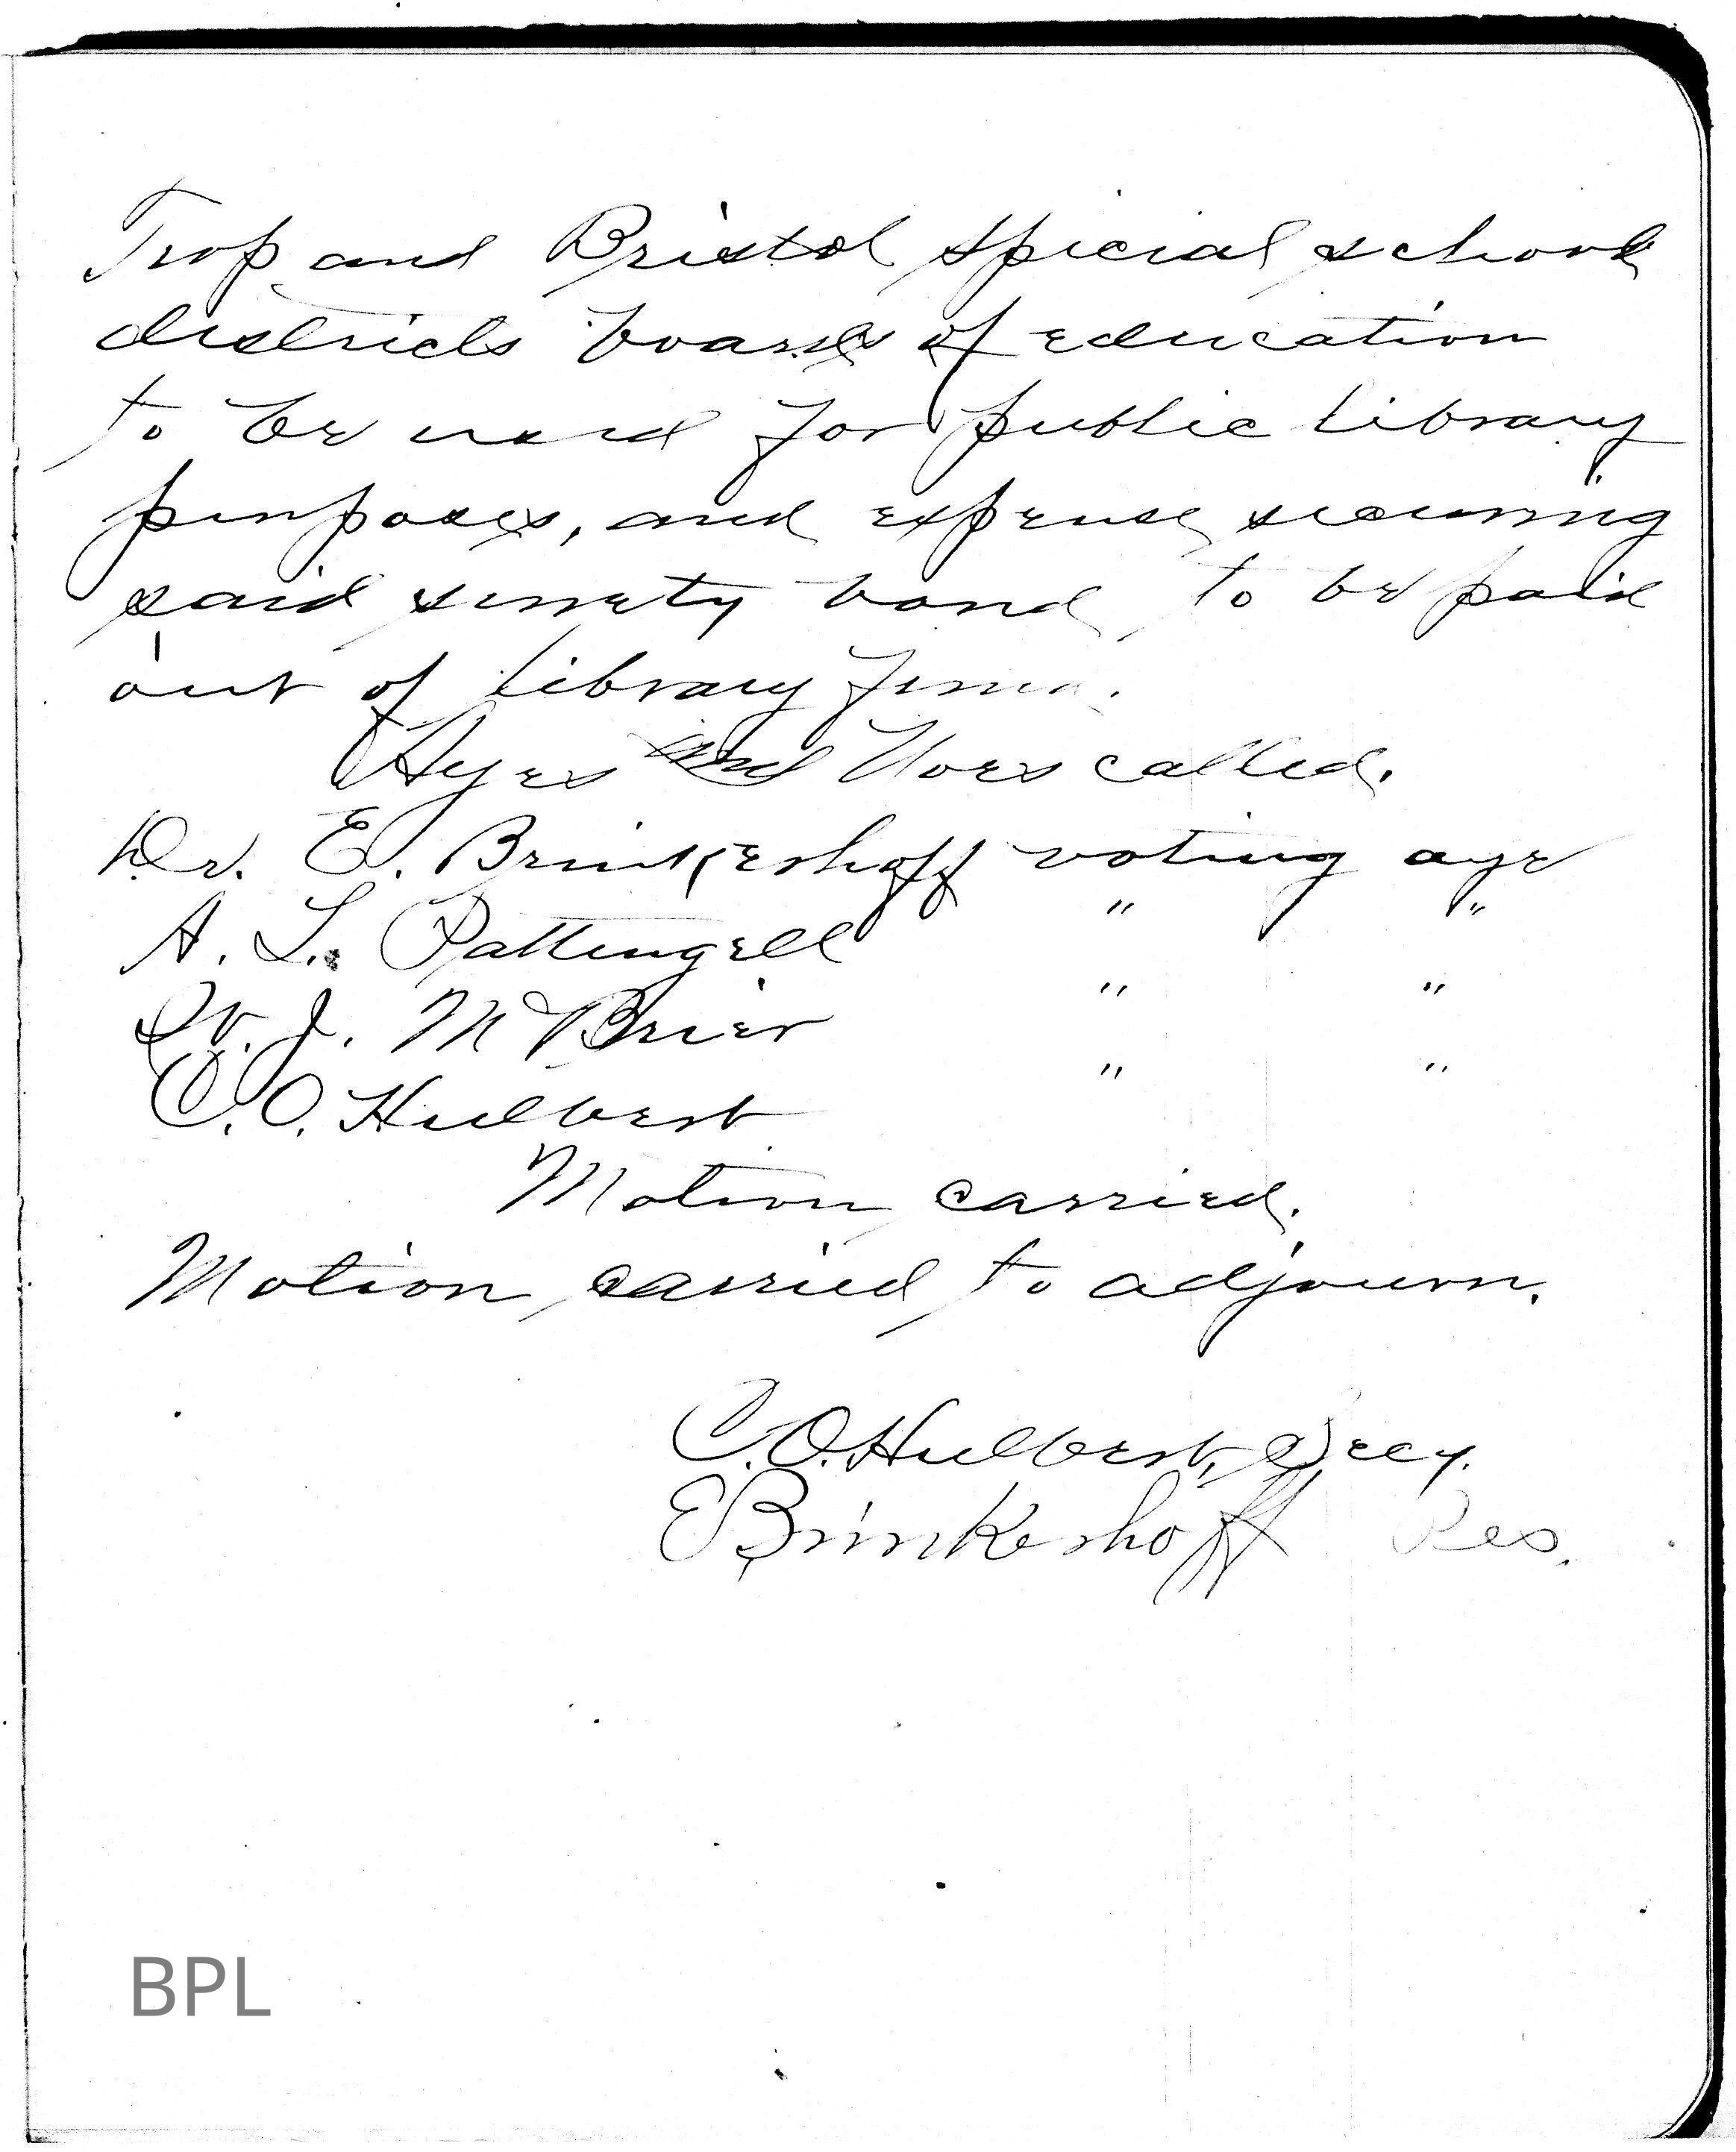 Trop and Bristol special school
districts boards of education
to be used for public library
purposes, and expense securing
said surety bond, to be paid
out of library fund.
Ayes and Noes called.
Dr. E. Brinkerhoff voting aye
A. L. Pattengell " "
W. J. McBrier " "
C. O. Hulbert " "
Motion carried.
Motion carried to adjourn.
C. O. Hulbert, Secy.
E Brinkerhoff Pres.
BPL